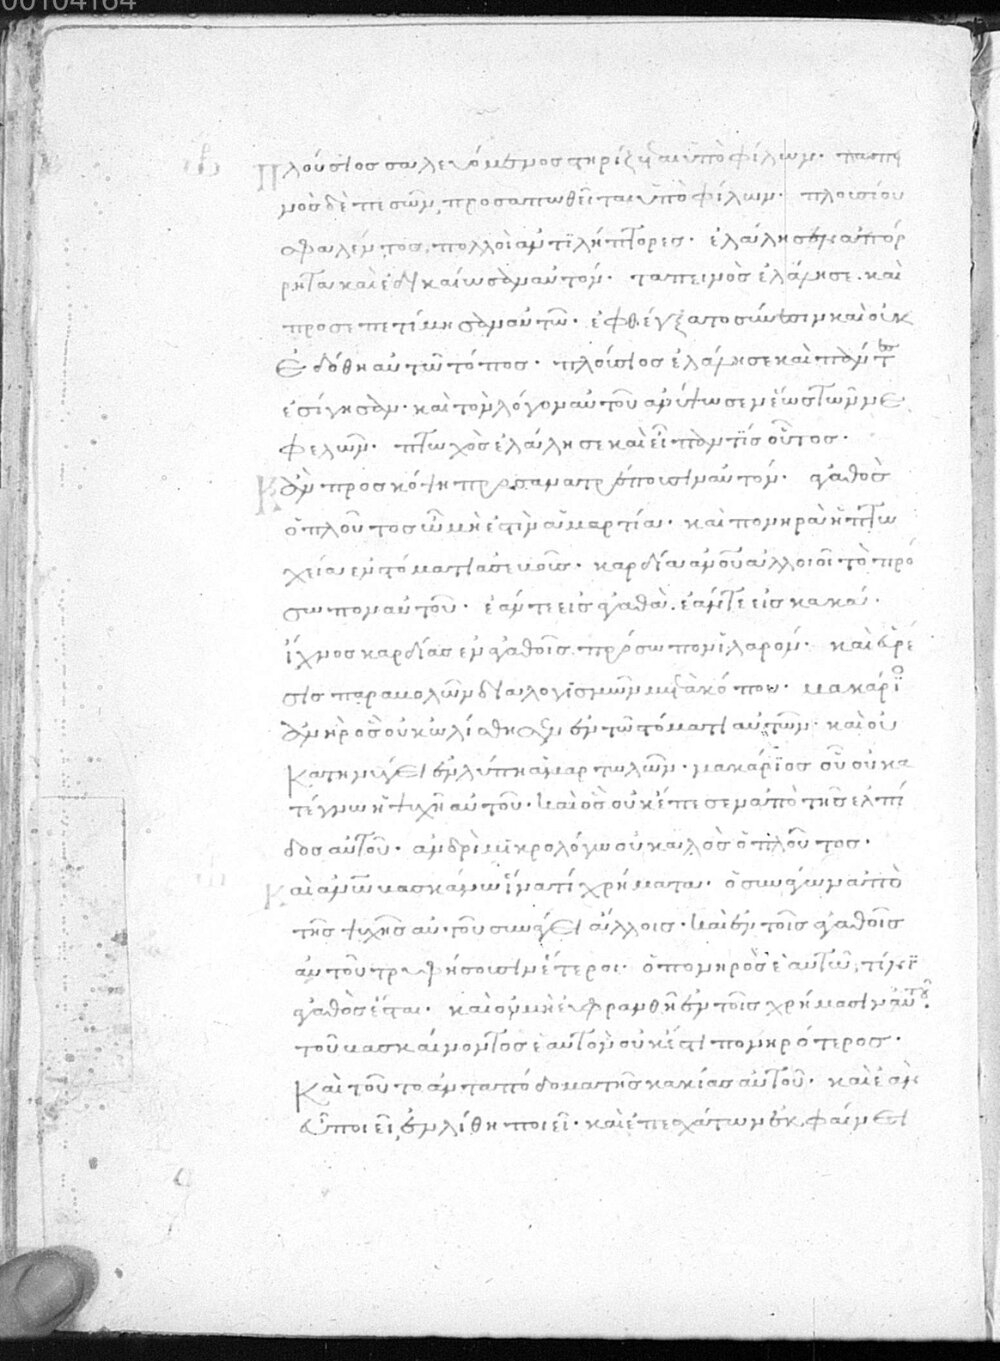 00104164
Πλούσιος σαλευόμενος στηρίζεται ὑπὸ φίλων· ταπει
νὸς δὲ πεσὼν, προσαπωθεῖται ὑπὸ φίλων· πλουσίου
σφαλέντος, πολλοὶ ἀντιλήπτορες· ἐλάλησεν ἀπόρ
ρητα καὶ ἐδικαίωσαν αὐτόν· ταπεινὸς ἐλάλησε. καὶ
προσεπετίμησαν αὐτῶ· ἐφθέγξατο σύνεσιν καὶ οὐκ
ἐδόθη αὐτῶ τόπος· πλούσιος ἐλάλησε καὶ πάντες
ἐσίγησαν· καὶ τὸν λόγον αὐτοῦ ἀνύψωσεν ἕως τῶν νε
φελῶν· πτωχὸς ἐλάλησε καὶ εἶπον τίς οὗτος·
Κἂν προσκόψη προσανατρέψουσιν αὐτόν· ἀγαθὸς
ὁ πλοῦτος ὧ μή ἐστιν ἁμαρτία· καὶ πονηρὰ ἡ πτω
χεία ἐν στόματι ἀσεβοῦς· καρδία ἀνοῦ ἀλλοιοῖ τὸ πρό
σωπον αὐτοῦ· ἐάν τε εἰς ἀγαθὰ. ἐάν τε εἰς κακά·
ἴχνος καρδίας ἐν ἀγαθοῖς πρόσωπον ἱλαρόν· καὶ εὕρε
σις παραβολῶν διαλογισμῶν μετὰ κόπου· μακάριος
ἀνὴρ ὃς οὐκ ὠλίσθησεν ἐν στόματι αὐτῶν· καὶ οὐ
κατηνύγει ἐν λύπη ἁμαρτωλῶν· μακάριος οὗ οὐ κα
τέγνω ἡ ψυχὴ αὐτοῦ· καὶ ὃς οὐκ ἔπεσεν ἀπὸ τῆς ἐλπί
δος αὐτοῦ· ἀνδρὶ μικρολόγω οὐ καλὸς ὁ πλοῦτος·
Καὶ ἀνῶ βασκάνω ἵνα τί χρήματα· ὁ συνάγων ἀπὸ
τῆς ψυχῆς αὐτοῦ συνάγει ἄλλοις· καὶ ἐν τοῖς ἀγαθοῖς
αὐτοῦ τρυφήσουσιν ἕτεροι· ὁ πονηρὸς ἑαυτῶ, τίνι
ἀγαθὸς ἔσται· καὶ οὐ μὴ εὐφρανθῆ ἐν τοῖς χρήμασιν αὐτοῦ·
τοῦ βασκαίνοντος ἑαυτὸν οὐκ ἔστι πονηρότερος·
Καὶ τοῦτο ἀνταπόδομα τῆς κακίας αὐτοῦ· καὶ ἐὰν
εὐποιεῖ, ἐν λήθη ποιεῖ· καὶ ἐπεσχάτων ἐκφαίνει